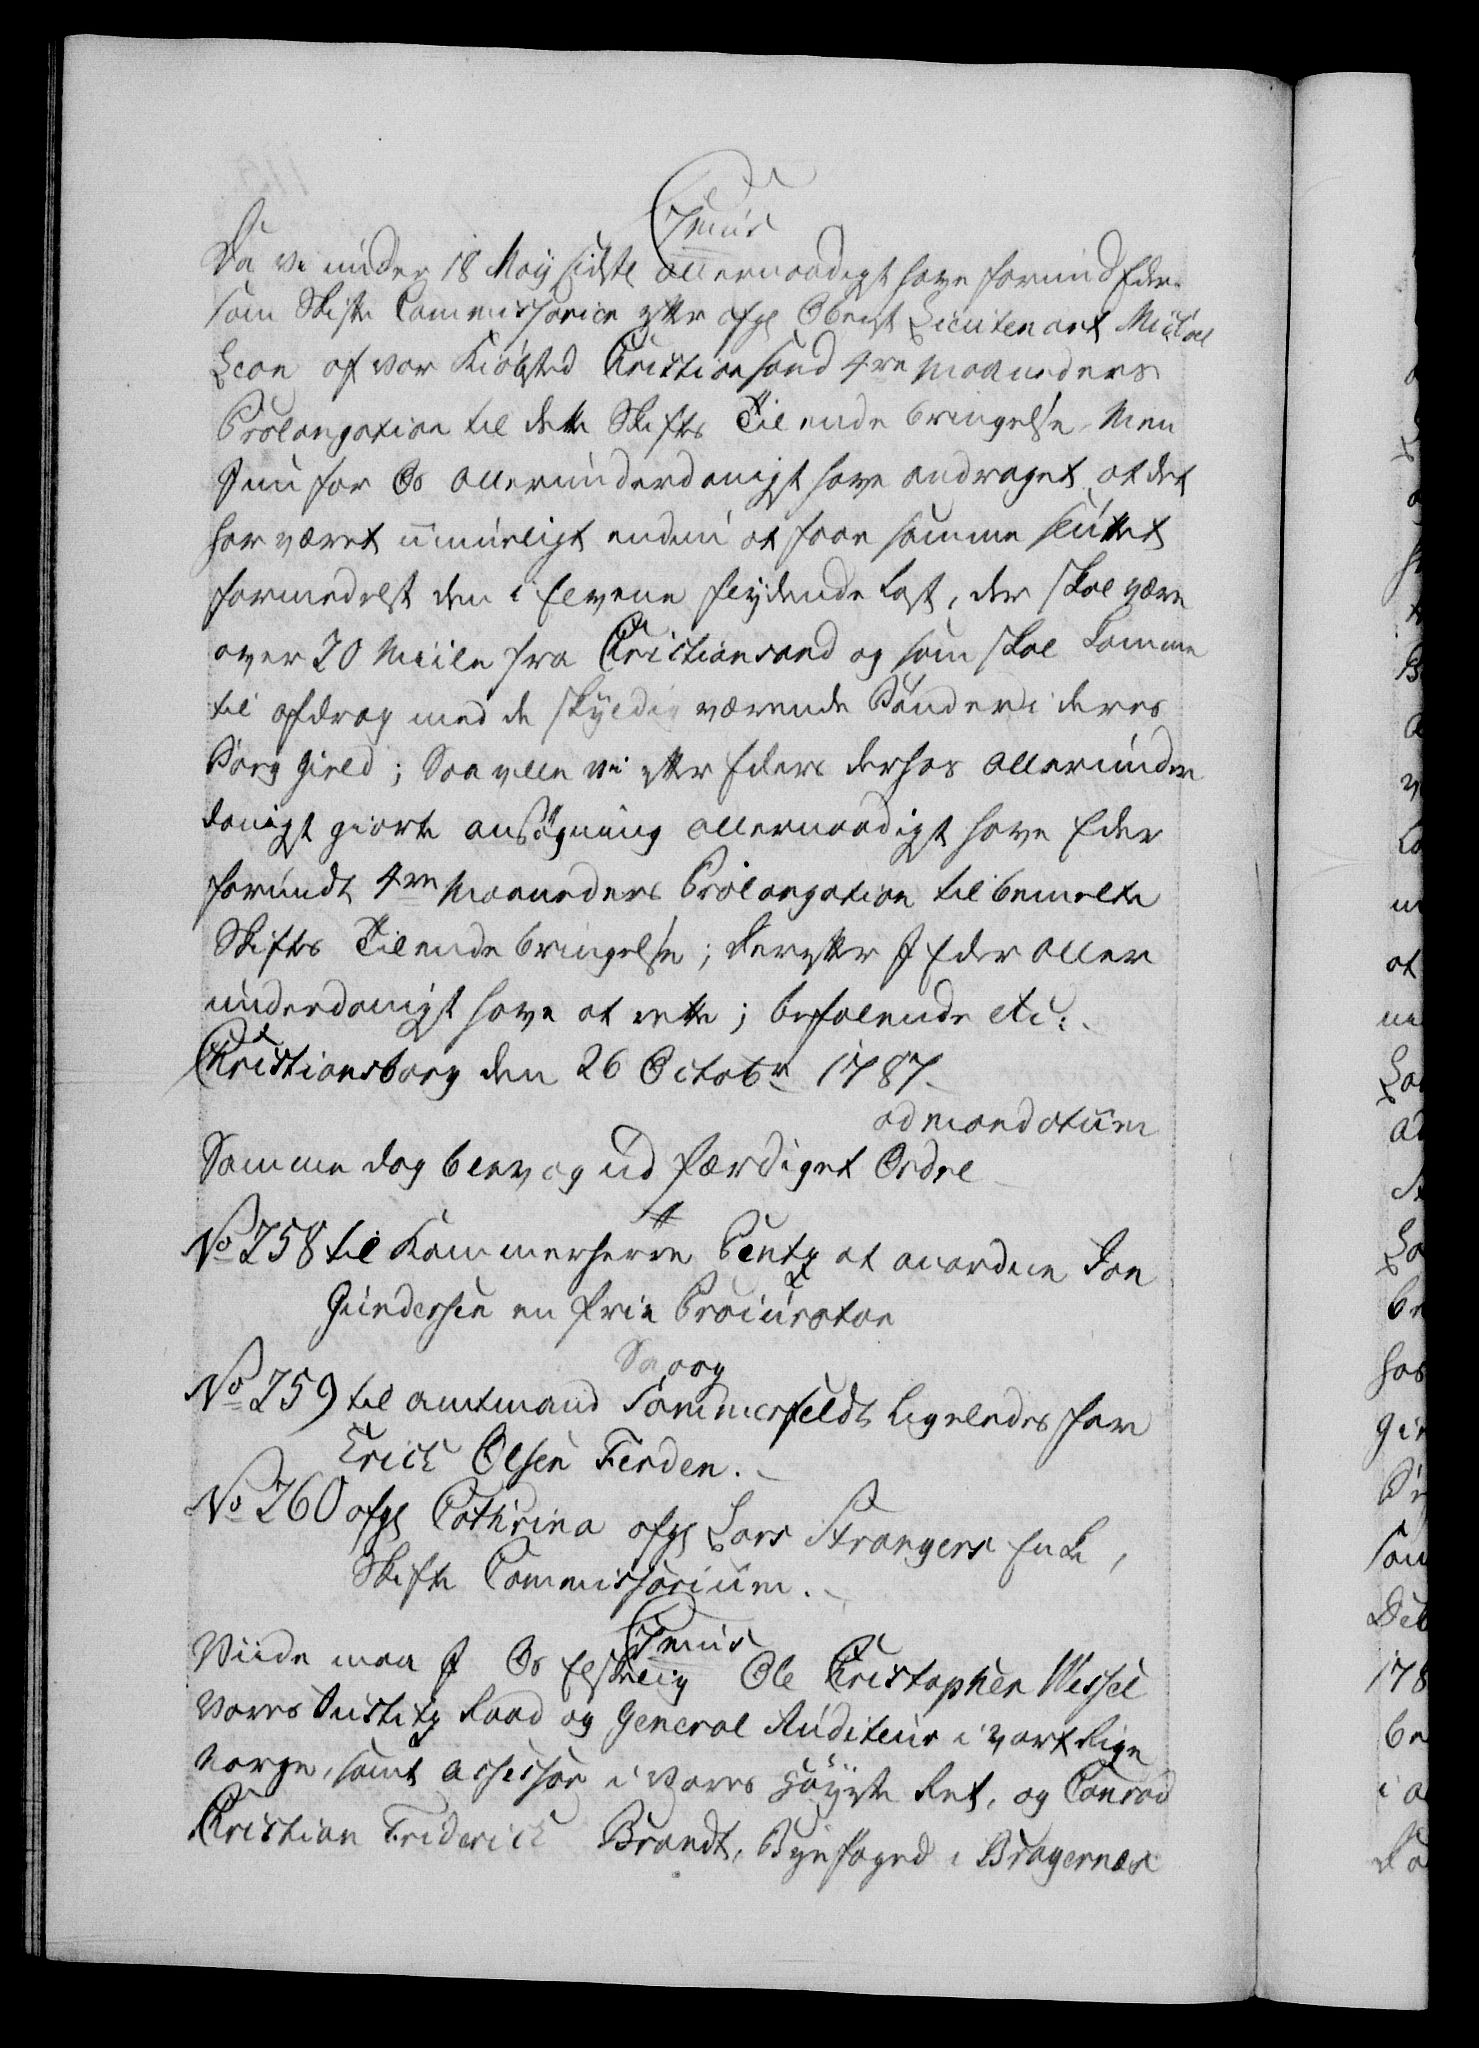 Cmus
Da vi under 18 Maÿ sidste allernaadigst have forund Eder
som Skifte Commissarier efter afg Obrist Lieutenant Michael
Leon af vor Kiøbsted Christiansand 4re Maaneders
Prolongation til dette Skiftes Tilende bringelse, Men
I nu for Os allerunderdanigst have andraget, at det
har været umueligt endnu at faae samme sluttet
formedelst den i Elvene flydende Last, der skal være
over 20 Miile fra Christiansand og som skal komme
til afdrag med de skyldig værende Bønder i deres
Borg Gield; Saa ville vi efter Eders derhos allerunder
danigst giorte ansøgning allernaadigst have Eder
forundt 4re Maaneders Prolongation til bemelte
Skiftes Tilende bringelse; derefter I Eder aller
underdanigst have at rette; befalende etc:
Christiansborg den 26 Octobr 1787
ad mandatum
Samme dag blev og ud færdiget Ordre
No 258 til Kammerherre Pentz at anordne Jon
Gundersen en frie Procurator
Saaog
No 259 til amtmand Sommerfeldt ligeledes for
Erich Olsen Ferden.
No 260 afg Cathrina afg Lars Strangers Enke,
Skifte Commissorium.
Cmus
Viide maa I Os Elskelig Ole Christopher Wessel
Vores Justitz Raad og General Auditeur i vort Rige
Norge, samt Assessor i Vores Høÿeste Ret, og Conrad
Christian Friderich Brandt, Byefoged i Bragernæs